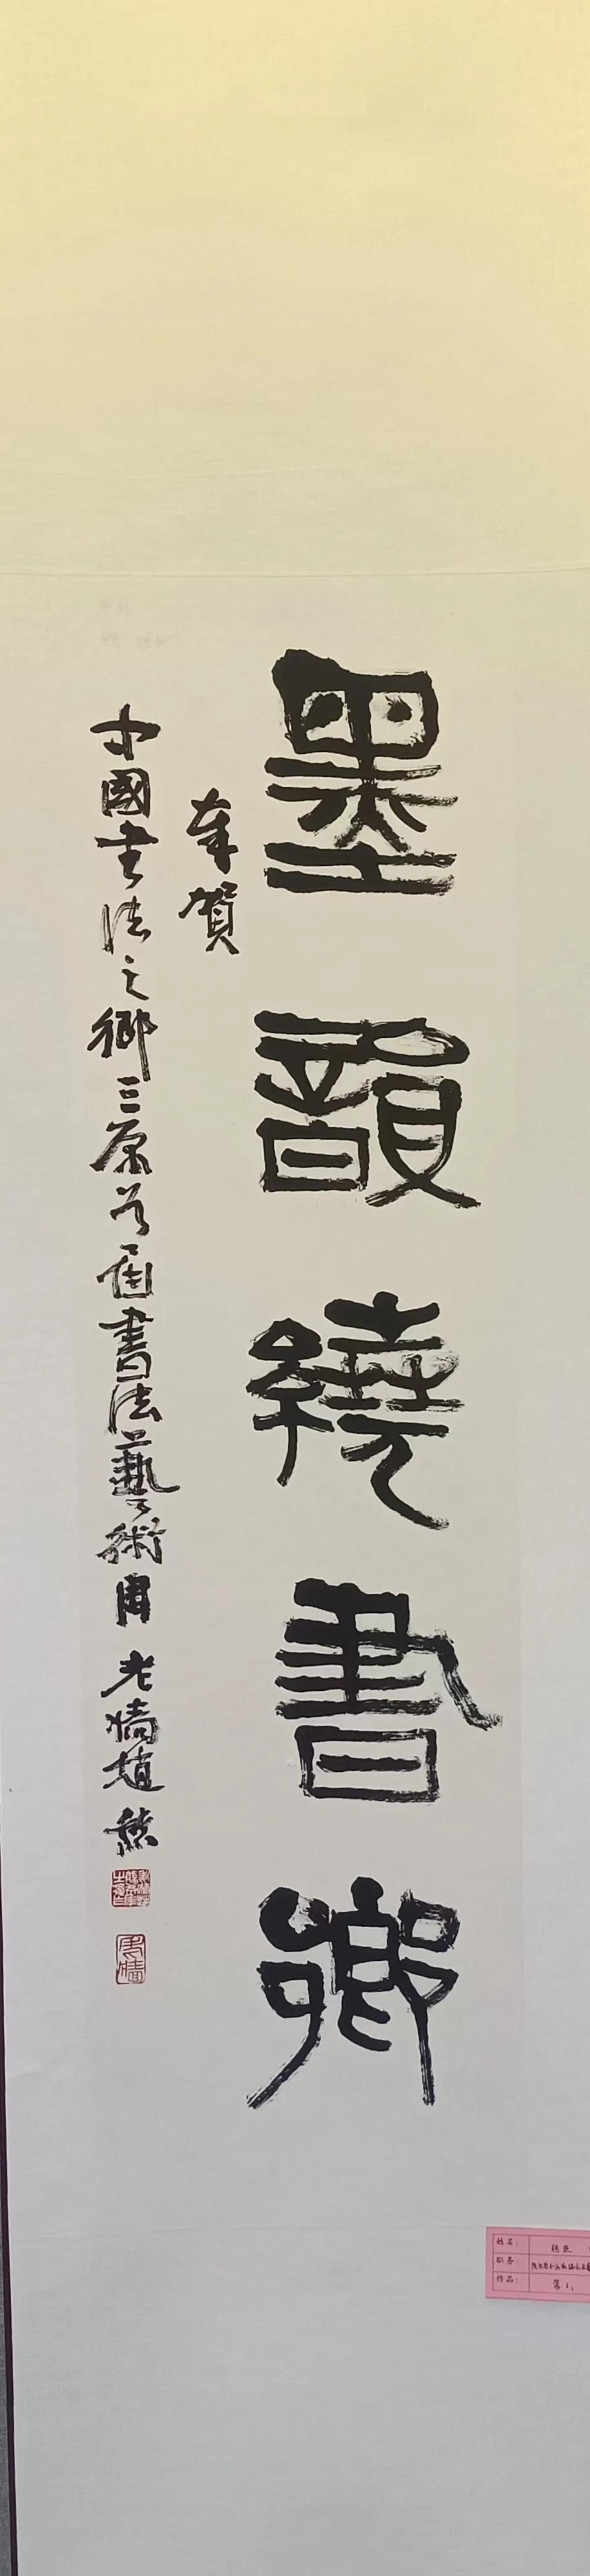 墨韻繞書鄉
奉賀
中國書法之鄉三原首屆書法藝術周 趙熊
姓名:
职务:
作品: